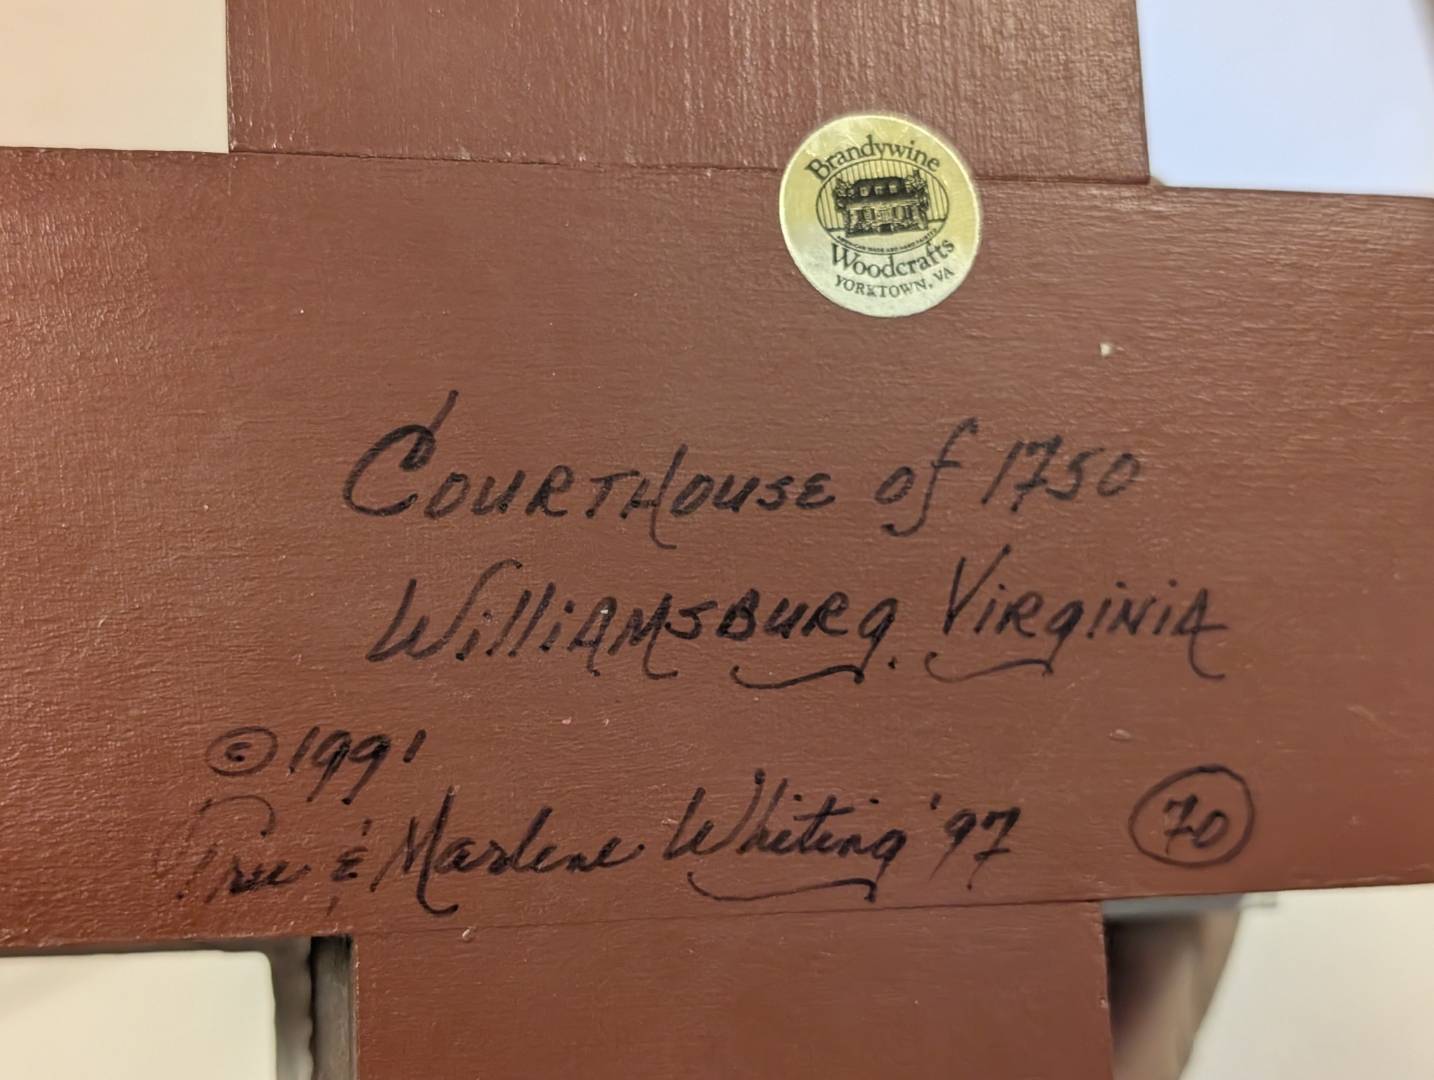 Brandywine
AMERICAN MADE AND HAND PAINTED
Woodcrafts
YORKTOWN, VA
COURTHOUSE of 1750
WilliAMSBURG, VIRGINIA
© 1991
& Marlene Whiting '97
70